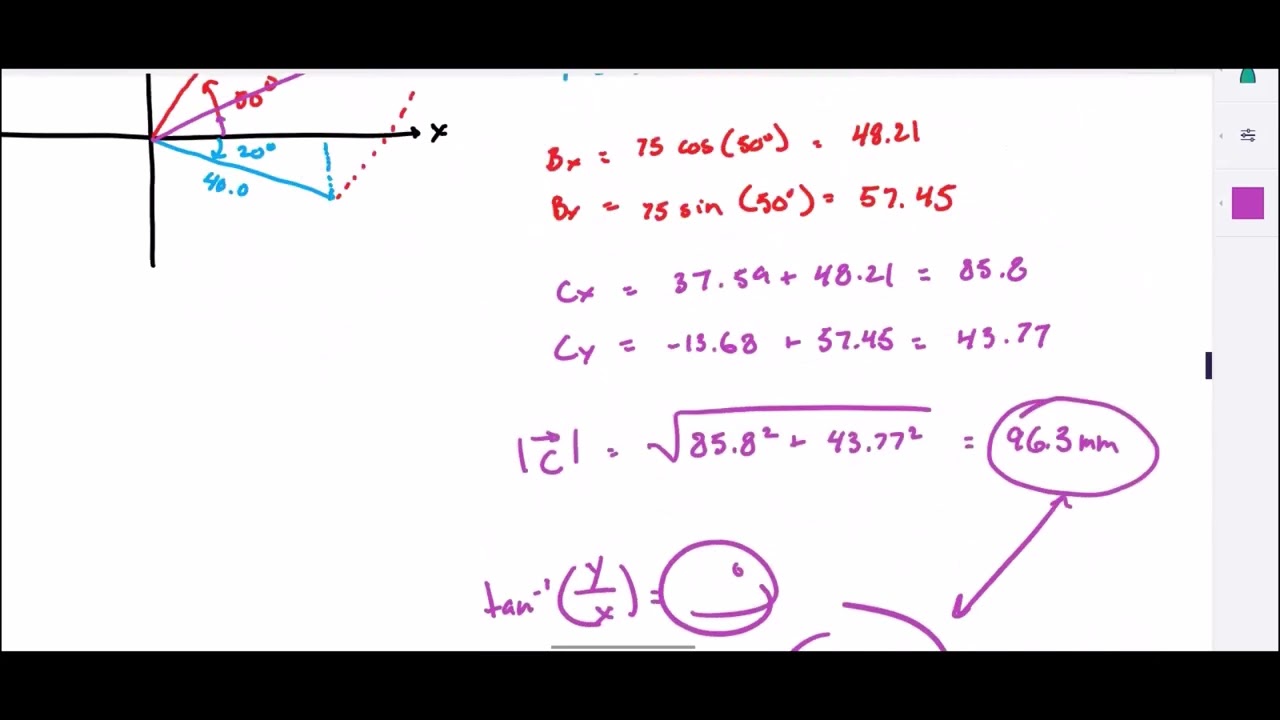 50°
x
20°
40.0
Bx = 75 cos(50°) = 48.21
By = 75 sin (50°) = 57.45
Cx = 37.59 + 48.21 = 85.8
Cy = -13.68 + 57.45 = 43.77
|C⃗| = √85.8² + 43.77² = 96.3 mm
tan⁻¹(y/x) = °